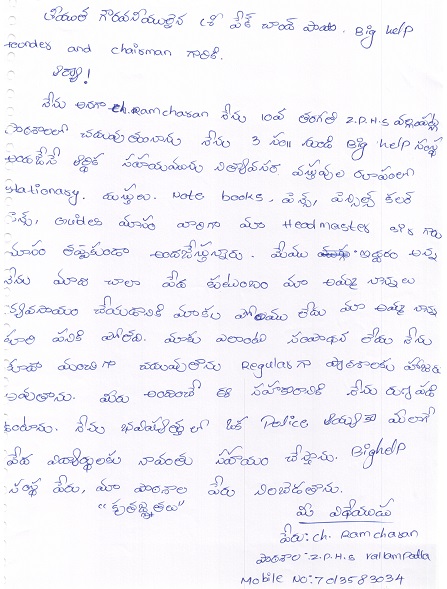 అత్యంత గౌరవనీయులైన శ్రీ చాంద్ పాషా. Big help
founder and chairman గారికి.
ఆర్యా!
నేను అనగా ch.Ramcharan నేను 10వ తరగతి Z.P.H.S వల్లంపట్ల
పాఠశాలలో చదువుతున్నాను నేను 3 సం॥ నుండి Big help సంస్థ
అందజేసే ఆర్థిక సహాయమును నిత్యావసర వస్తువుల రూపంలో
stationary. దుస్తులు. Note books. పెన్స్, పెన్సిల్స్ కలర్
పెన్స్, Guides మాకు వారిగా మా Headmaster sir గారు
మాకు తప్పకుండా అందజేస్తున్నారు. మేము ఇద్దరం అన్న
నేను మాది చాలా పేద కుటుంబం మా అమ్మ నాన్నలు
వ్యవసాయం చేయడానికి మాకు పొలము లేదు మా అమ్మ నాన్న
కూలి పనికి పోతారు. మాకు ఎలాంటి సంపాదన లేదు నేను
కూడా మంచిగా చదువుతాను Regular గా పాఠశాలకు హాజరు
అవుతాను. మీరు అందించే ఈ సహకారానికి నేను రుణపడి
ఉంటాను. నేను భవిష్యత్తులో ఒక Police అయ్యి మీలాగే
పేద విద్యార్థులకు నావంతు సహాయం చేస్తాను. Bighelp
సంస్థ పేరు, మా పాఠశాల పేరు నిలబెడతాను.
"కృతజ్ఞతలు"
మీ విధేయుడు
పేరు: ch. Ramcharan
పాఠశాల: Z.P.H.S vallampatla
Mobile NO: 7013583034